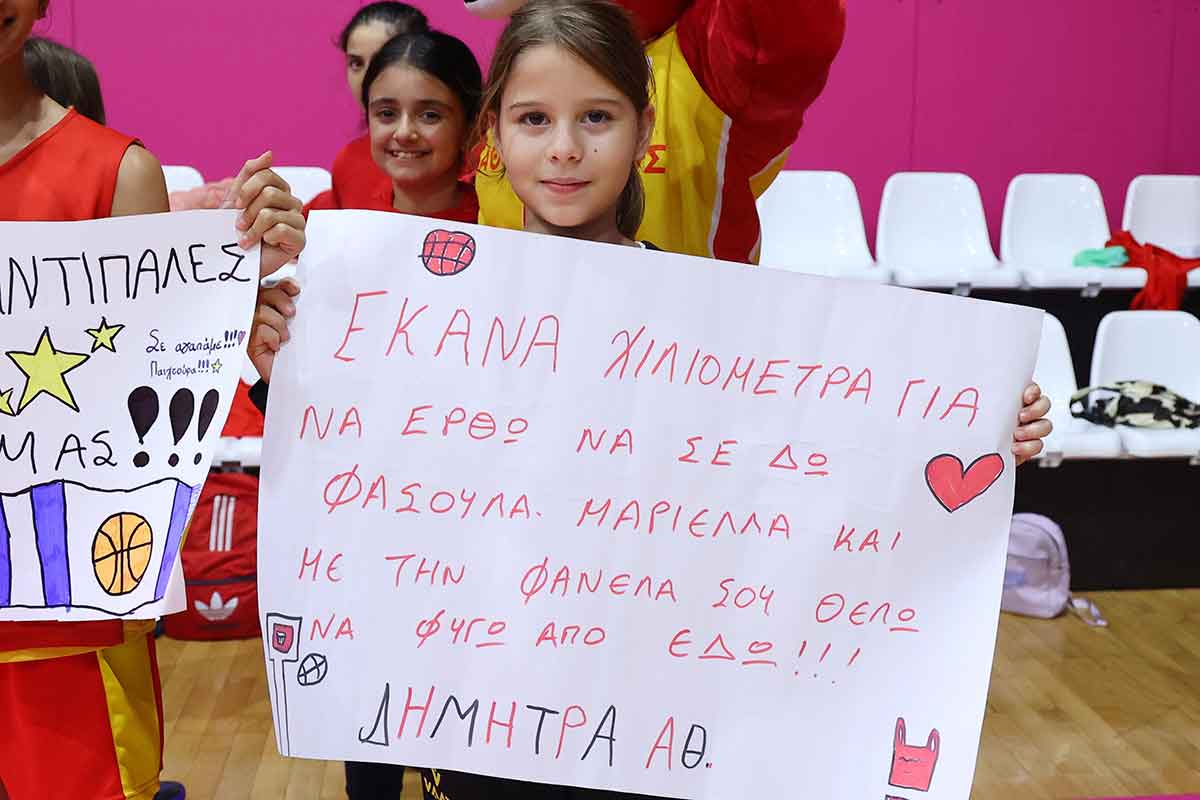 ΝΤΙΠΑΛΕΣ
Σε αγαπάμε!!!
Παντσούρα!!!
ΜΑΣ !!!
ΕΚΑΝΑ ΧΙΛΙΟΜΕΤΡΑ ΓΙΑ
ΝΑ ΕΡΘΩ ΝΑ ΣΕ ΔΩ
ΦΑΣΟΥΛΑ. ΜΑΡΙΕΛΛΑ ΚΑΙ
ΜΕ ΤΗΝ ΦΑΝΕΛΑ ΣΟΥ ΘΕΛΩ
ΝΑ ΦΥΓΩ ΑΠΟ ΕΔΩ!!!
ΔΗΜΗΤΡΑ ΑΘ.